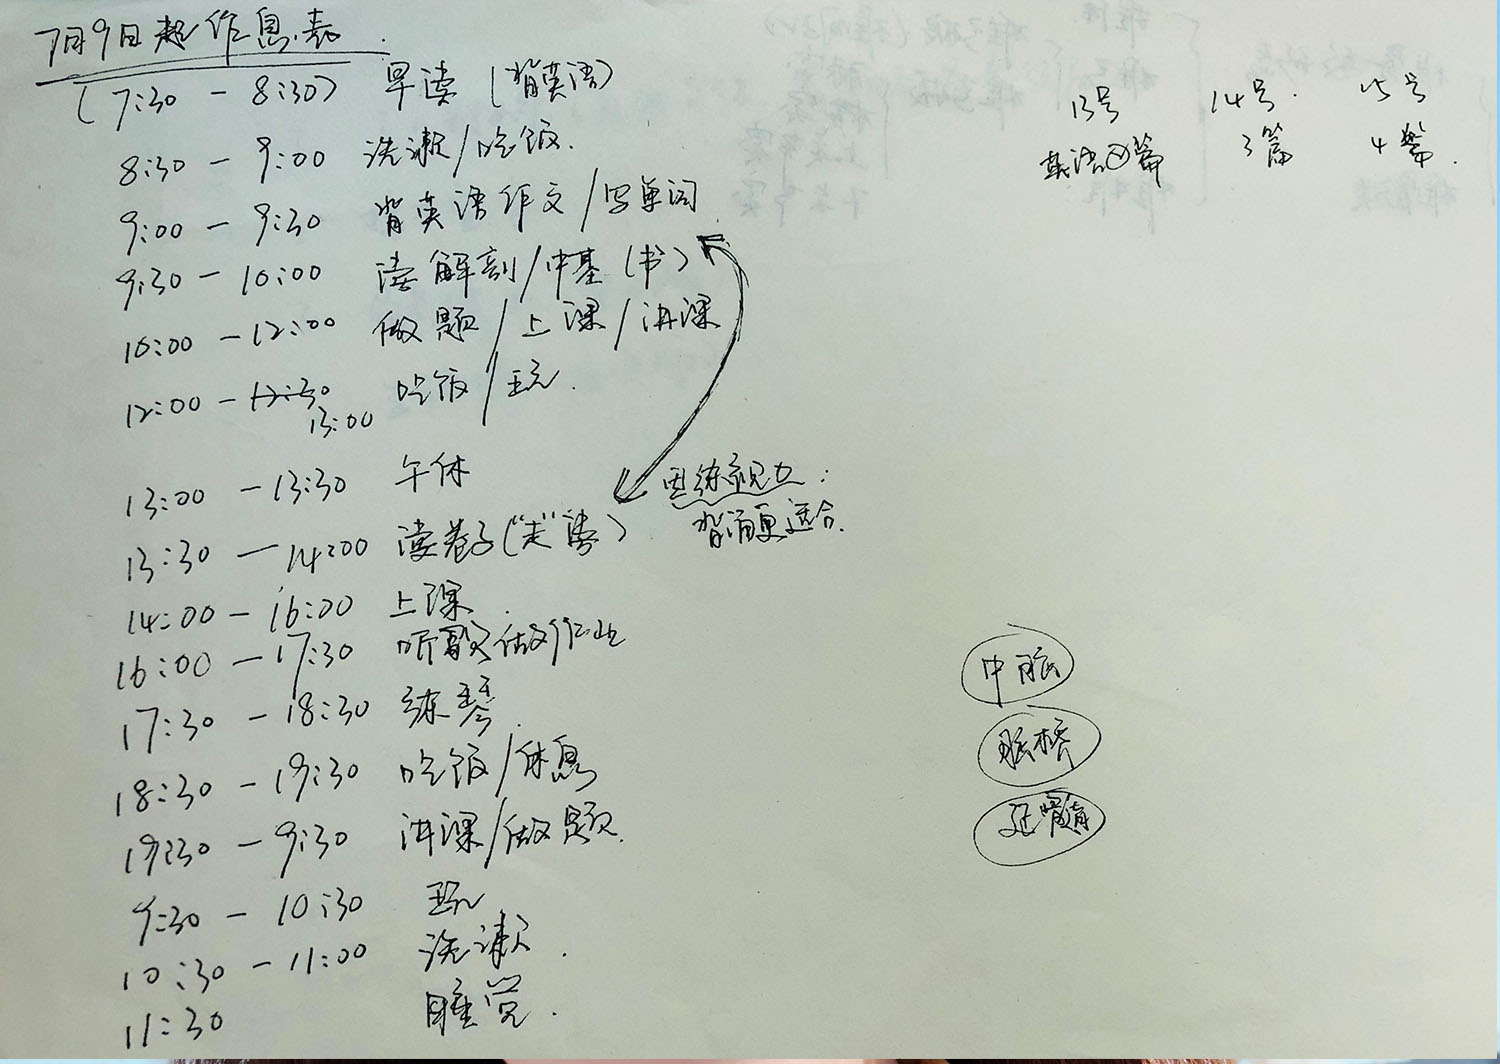 7月9日起作息表
(7:30 - 8:30) 早读 (背英语)
8:30 - 9:00 洗漱/吃饭.
9:00 - 9:30 背英语作文/写单词
9:30 - 10:00 读解剖/中基(书)
10:00 - 12:00 做题/上课/讲课
12:00 - 12:30 吃饭/玩.
13:00
13:00 - 13:30 午休
13:30 - 14:00 读卷子("走"读)
14:00 - 16:00 上课.
16:00 - 17:30 听歌 做作业
17:30 - 18:30 练琴.
18:30 - 19:30 吃饭/休息
19:30 - 9:30 讲课/做题.
9:30 - 10:30 玩
10:30 - 11:00 洗漱.
11:30 睡觉.
因练视力:
背诵更适合.
13号 14号. 15号
英语②篇 3篇 4篇.
中脑
脑桥
延髓